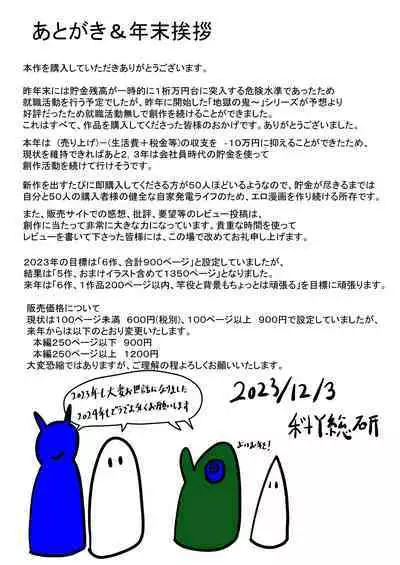 あとがき＆年末挨拶
本作を購入していただきありがとうございます。
昨年末には貯金残高が一時的に1桁万円台に突入する危険水準であったため
就職活動を行う予定でしたが、昨年に開始した「地獄の鬼～」シリーズが予想より
好評だったため就職活動無しで創作を続けることができました。
これはすべて、作品を購入してくださった皆様のおかげです。ありがとうございました。
本年は （売り上げ）－（生活費＋税金等）の収支を -10万円に抑えることができたため、
現状を維持できればあと2，3年は会社員時代の貯金を使って
創作活動を続けて行けそうです。
新作を出すたびに即購入してくださる方が50人ほどいるようなので、貯金が尽きるまでは
自分と50人の購入者様の健全な自家発電ライフのため、エロ漫画を作り続ける所存です。
また、販売サイトでの感想、批評、要望等のレビュー投稿は、
創作に当たって非常に大きな力になっています。貴重な時間を使って
レビューを書いて下さった皆様には、この場で改めてお礼申し上げます。
2023年の目標は「6作、合計900ページ」と設定していましたが、
結果は「5作、おまけイラスト含めて1350ページ」となりました。
来年は「6作、1作品200ページ以内、竿役と背景もちょっとは頑張る」を目標に頑張ります。
販売価格について
現状は100ページ未満 600円(税別)、100ページ以上 900円で設定していましたが、
来年からは以下のとおり変更いたします。
本編250ページ以下 900円
本編250ページ以上 1200円
大変恐縮ではありますが、ご理解の程よろしくお願いいたします。
2023年も大変お世話になりました
2024年もどうぞよろしくお願いします
よいお年を!
2023/12/3
科丫総研